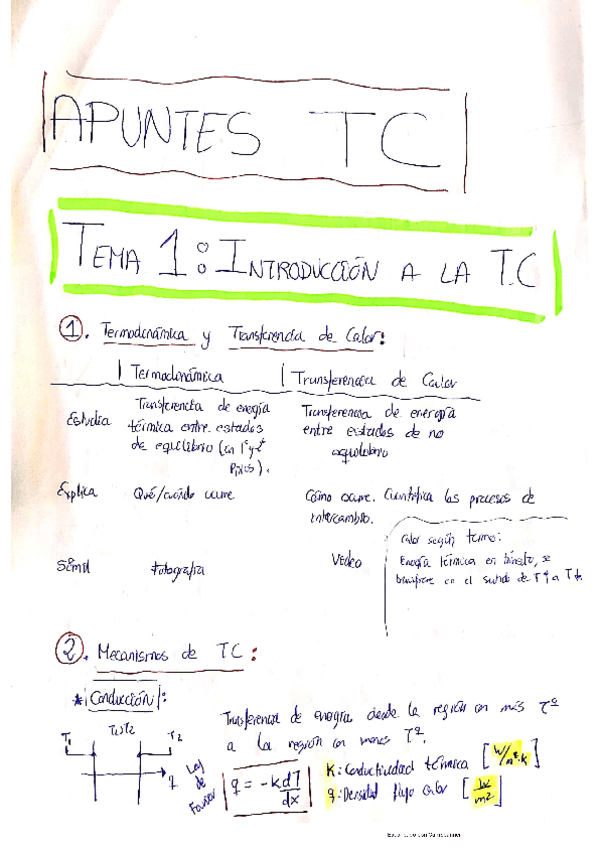 APUNTES TC
TEMA 1: INTRODUCCIÓN A LA T.C
1. Termodinámica y Transferencia de Calor:
Termodinámica | Transferencia de Calor
Estudia
Transferencia de energía
térmica entre estados
de equilibrio (en
Transferencia de energía
entre estados de no
equilibrio
Explica
Qué/cuándo ocurre
Cómo ocurre. Cuantifica los procesos de
intercambio.
Símil
Fotografía
Vídeo
Calor según termo:
Energía térmica en tránsito, se
transfiere en el sentido de T↑ a T↓.
2. Mecanismos de TC:
* Conducción:
Transferencia de energía desde la región con más Tª
a la región con menos Tª.
T1
T2
q
Ley
de
Fourier
q = -k dT/dx
K: Conductividad térmica
q: Densidad flujo calor [W/m2]